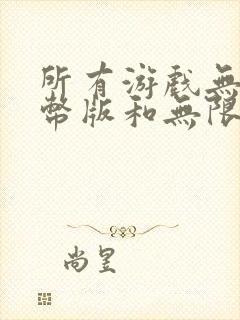 所有游戲無
幣版和無限
尚昱